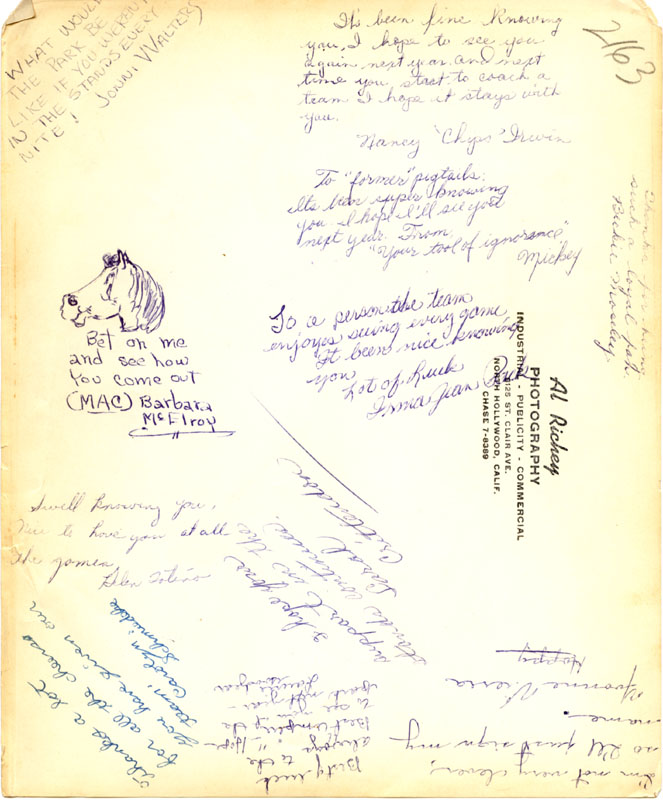 WHAT WOULD
THE PARK BE
LIKE IF YOU WEREN'T
IN THE STANDS EVERY
NITE! JONNI WALTERS
It's been fine knowing
you, I hope to see you
again next year and next
time you start to coach a
team I hope it stays with
you.
Nancy "Chips" Irwin
2163
To "former" pigtails:
Its been super knowing
you. I hope I'll see you
next year. From
"Your tool of ignorance"
Mickey
Thanks for being
such a loyal fan.
Buckie Moseley
To a person the team
enjoyes seeing every game
It been nice knowing
you
Lot of Luck
Irma Jean
Al Richey
PHOTOGRAPHY
INDUSTRIAL - PUBLICITY - COMMERCIAL
5125 ST. CLAIR AVE.
NORTH HOLLYWOOD, CALIF.
CHASE 7-8389
Bet on me
and see how
You come out
(MAC) Barbara
McElroy
Swell knowing you,
Nice to have you at all
the games
Helen
I hope your
support in the
stands continues.
Carol
Crittenden
Thanks a lot
for all the cheers
you have given our
team'
Carolyn
Schmidtke
Best
to the
always
Hope
to see you
back next year
I'm not very clever,
so I'll just sign my
name.
Yvonne Viera
Hoppy